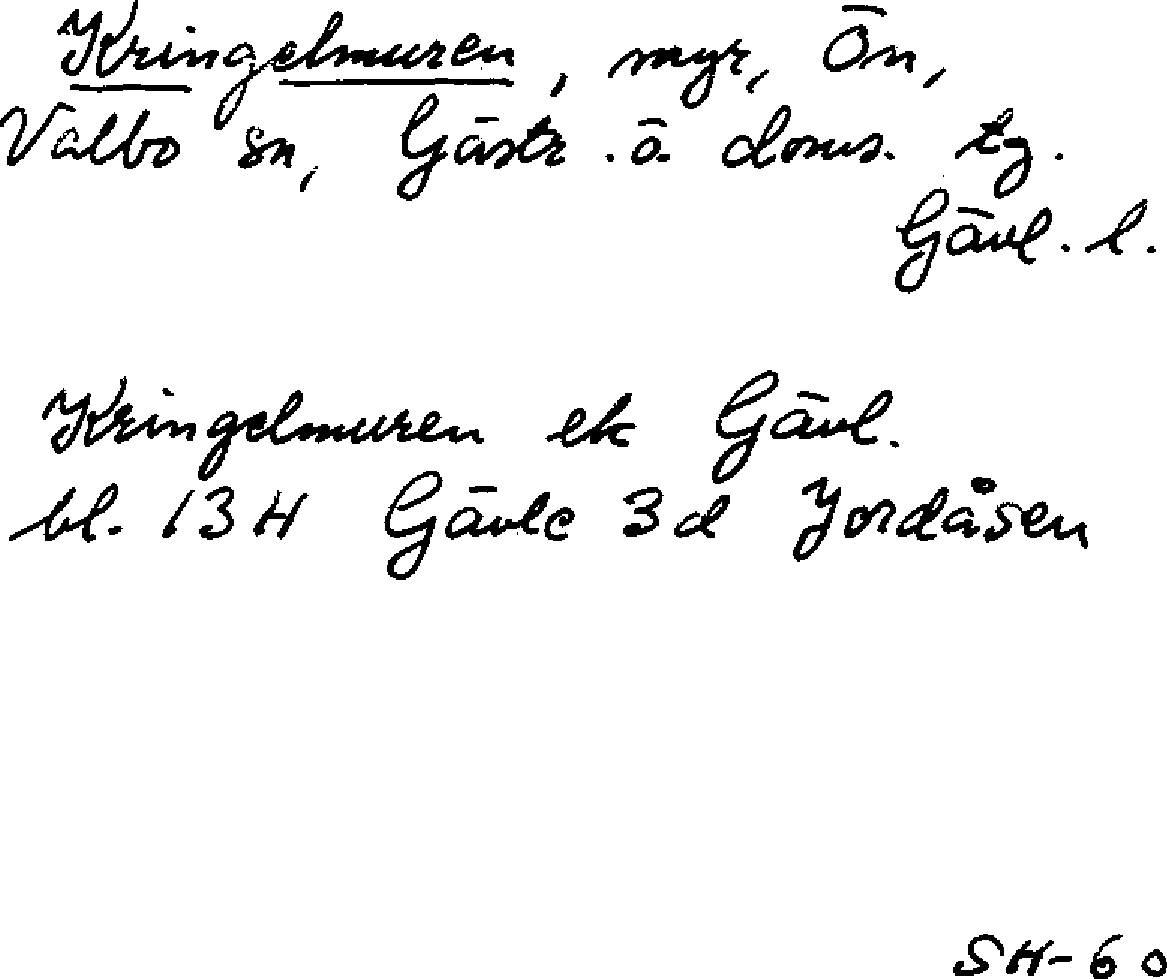 Kringelmuren, myr, Ön,
Valbo sn, Gästr. ö. doms. tg.
Gävl. l.
Kringelmuren ek Gävl.
bl. 13 H Gävle 3d Jordåsen
SH-60